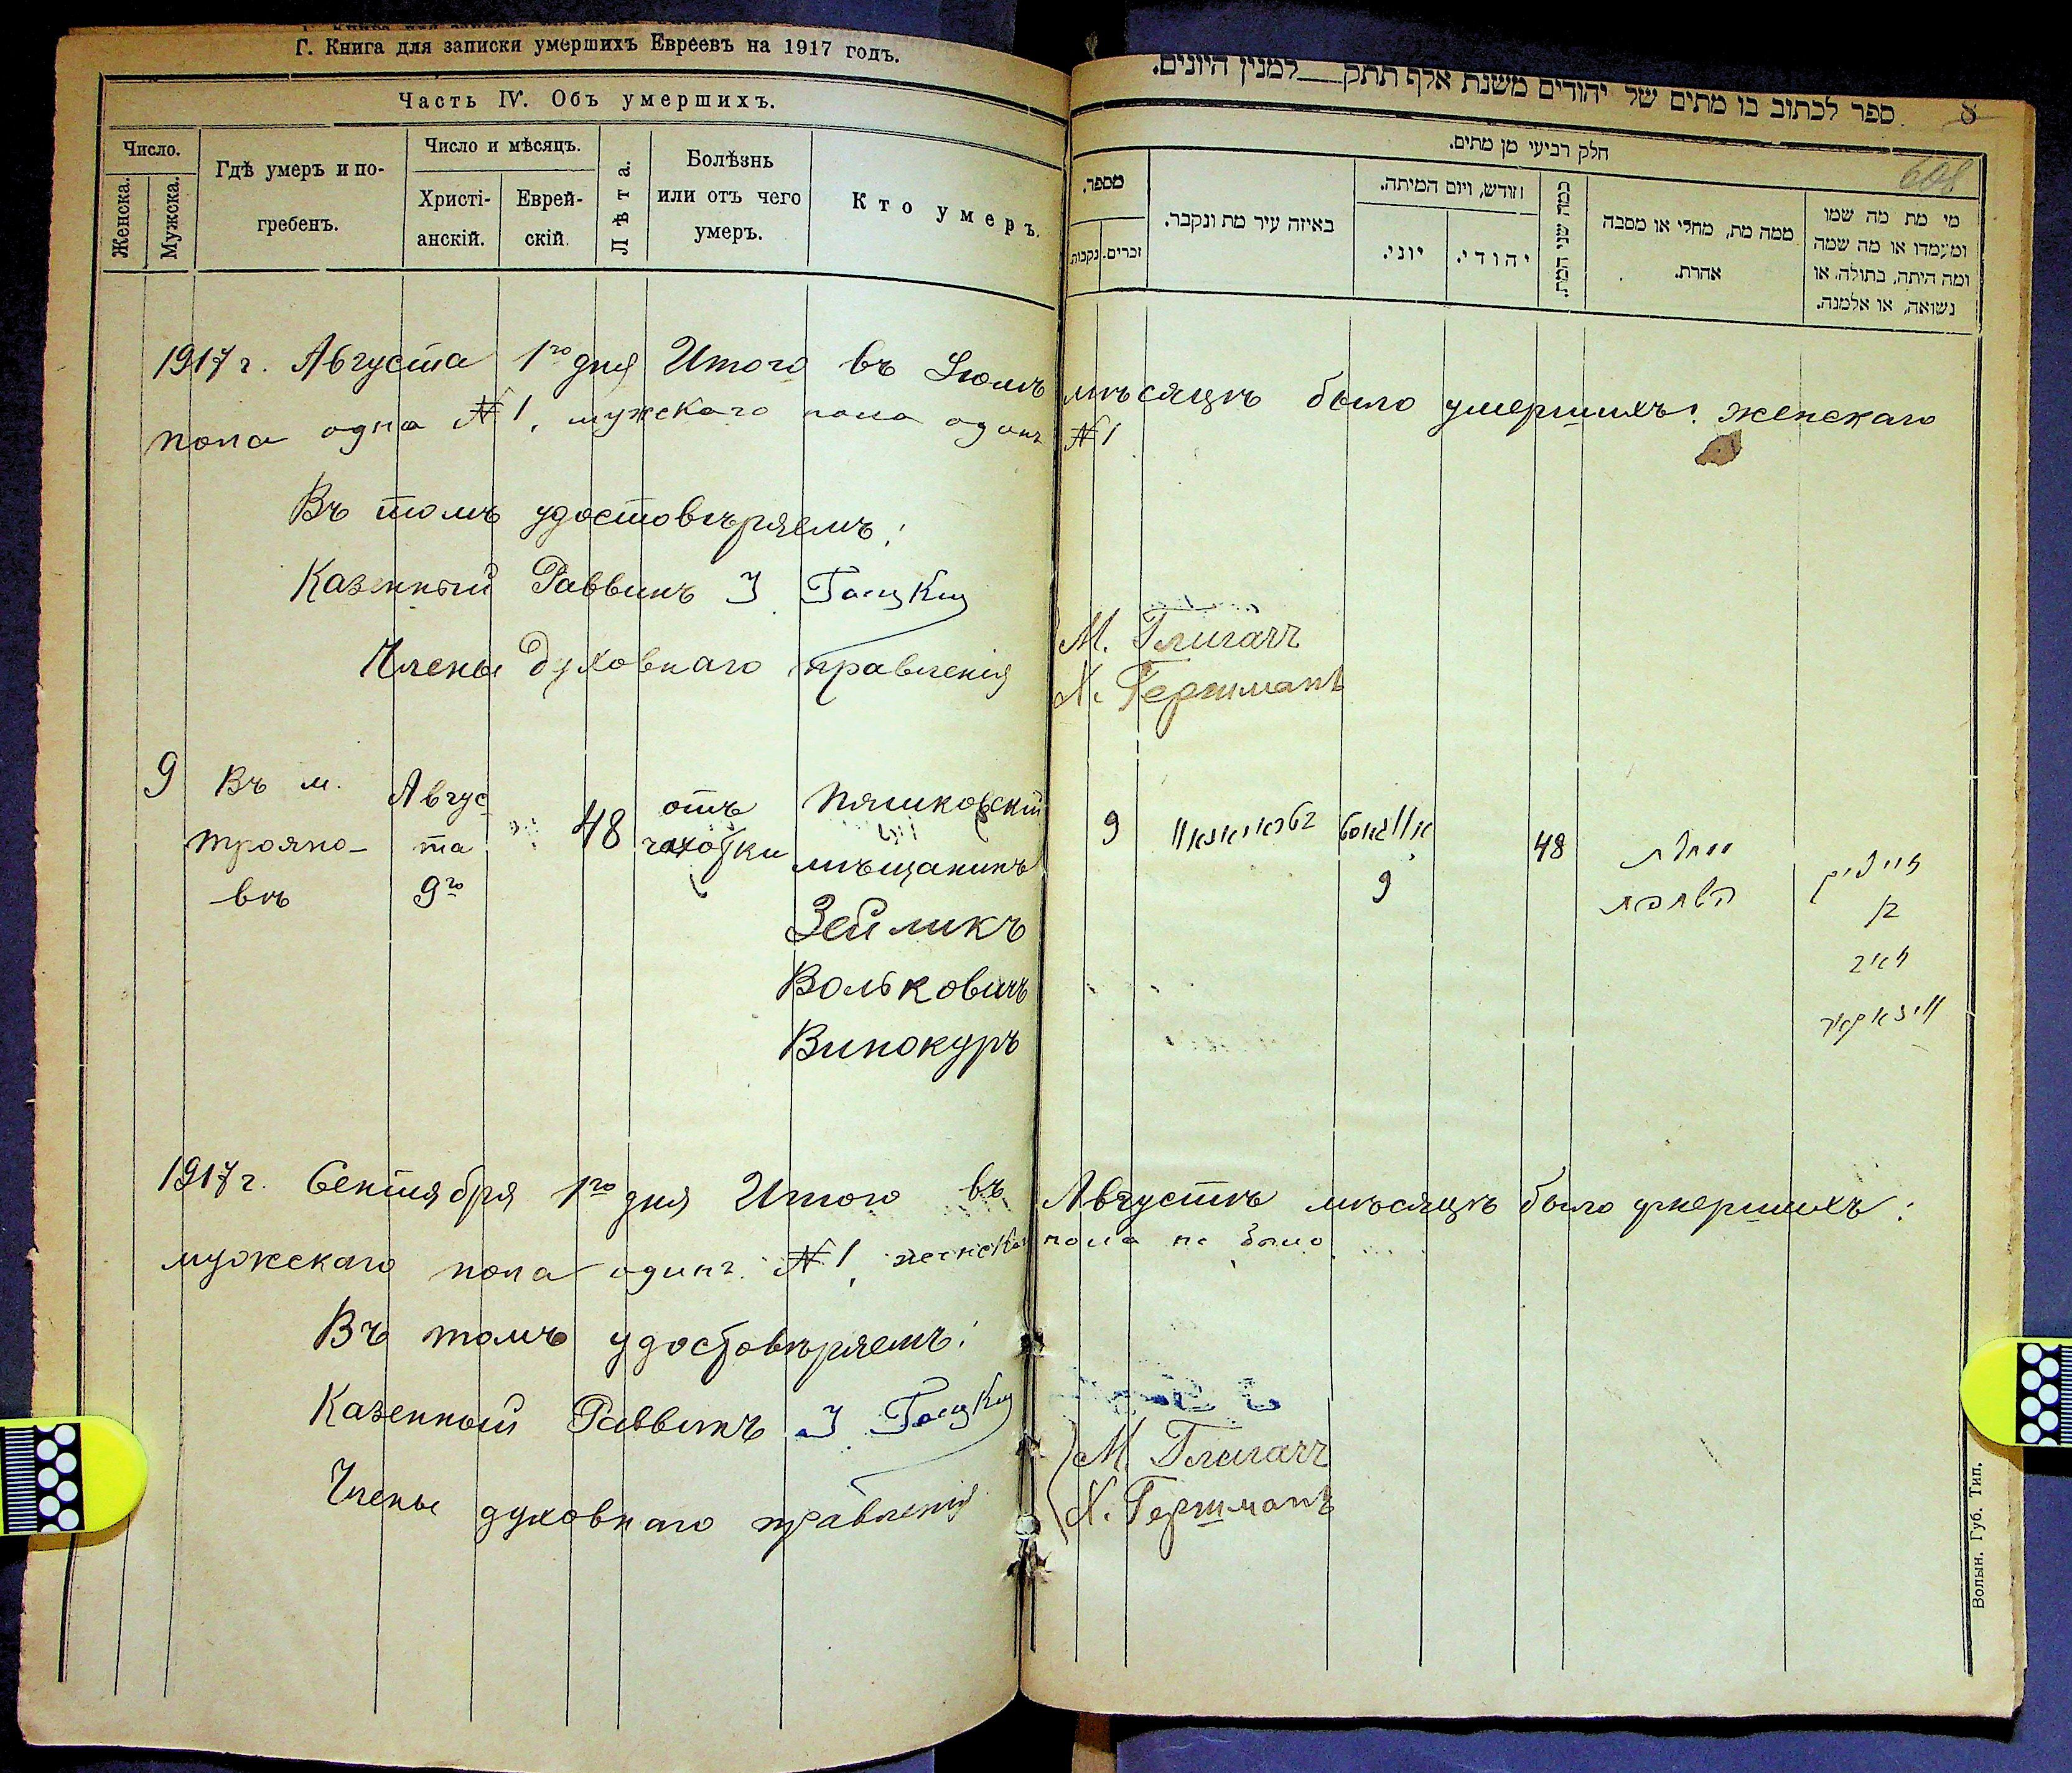 Г. Книга для записки умершихъ Евреевъ на 1917 годъ.
Часть IV. Объ умершихъ.
Число.
Женска.
Мужска.
Гдѣ умеръ и по-
гребенъ.
Число и мѣсяцъ.
Христі-
анскій.
Еврей-
скій.
Лѣта.
Болѣзнь
или отъ чего
умеръ.
Кто умеръ.
ספר לכתוב בו מתים של יהודים משנת אלף תתק למנין היונים.
8
608
חלק רביעי מן מתים.
מספר.
זכרים.
נקבות.
באיזה עיר מת ונקבר.
וזודש, ויום המיתה.
יוני.
יהודי.
כמה שני המת.
ממה מת, מחלי או מסבה
אהרת.
מי מת מה שמו
ומעמדו או מה שמה
ומה היתה, בתולה, או
נשואה, או אלמנה.
1917 г. Августа 1го дня Итого въ Іюлѣ мѣсяцѣ было умершихъ: женскаго
пола одна №1, мужскаго пола одинъ №1
Въ томъ удостовѣряемъ:
Казенный Раввинъ
Члены Духовнаго правленія
М. Глигачъ
Х. Гершманъ
9
Въ м.
трояно-
вѣ
Авгус
та
9го
48
отъ
чахотки
мѣщанинъ
Зейликъ
Вольковичъ
Винокуръ
9
טראיאנאוו
אווגוסט
9
48
מחלת
השחפת
זייליק
בן
זאב
ווינאקאר
1917 г. Сентября 1го дня Итого въ Августѣ мѣсяцѣ было умершихъ:
мужскаго пола одинъ №1, женскаго пола не было
Въ томъ удостовѣряемъ:
Казенный Раввинъ
Члены духовнаго правленія
М. Глигачъ
Х. Гершманъ
Волын. Губ. Тип.